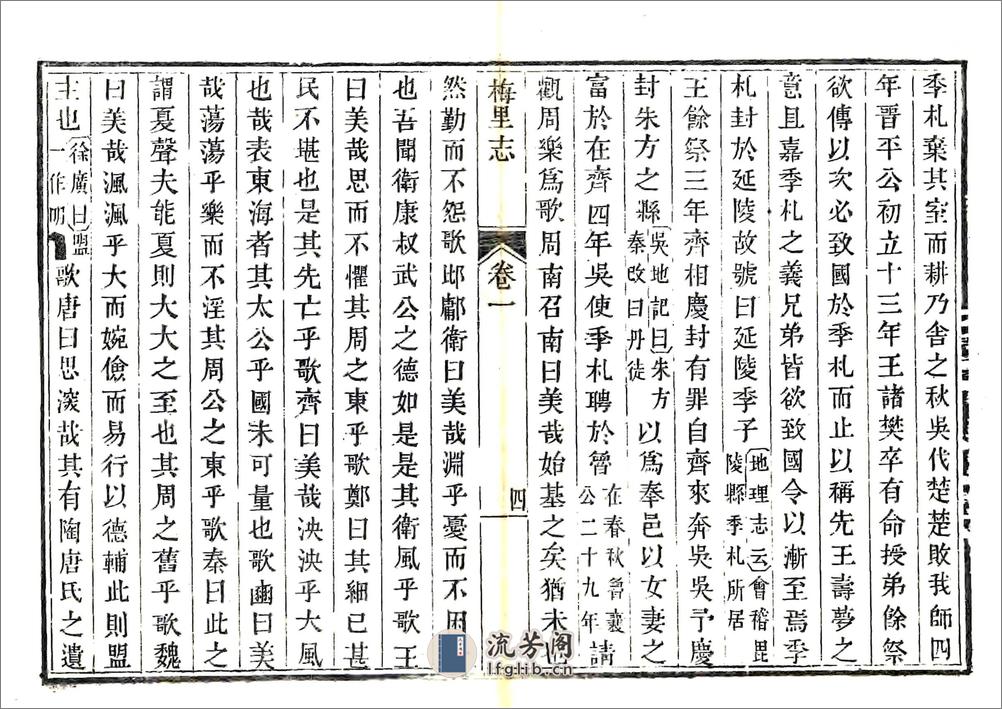 季札棄其室而耕乃舍之秋吳代楚楚敗我師四
年晉平公初立十三年王諸樊卒有命授弟餘祭
欲傳以次必致國於季札而止以稱先王壽夢之
意且嘉季札之義兄弟皆欲致國令以漸至焉季
札封於延陵故號曰延陵季子地理志云會稽毘
陵縣季札所居
王餘祭三年齊相慶封有罪自齊來奔吳吳予慶
封朱方之縣吳地記曰朱方
秦改曰丹徒以爲奉邑以女妻之
富於在齊四年吳使季札聘於魯在春秋魯襄
公二十九年請
梅里志 卷一 四
觀周樂爲歌周南召南曰美哉始基之矣猶未也
然勤而不怨歌邶鄘衛曰美哉淵乎憂而不困者
也吾聞衛康叔武公之德如是是其衛風乎歌王
曰美哉思而不懼其周之東乎歌鄭曰其細已甚
民不堪也是其先亡乎歌齊曰美哉泱泱乎大風
也哉表東海者其太公乎國未可量也歌豳曰美
哉蕩蕩乎樂而不淫其周公之東乎歌秦曰此之
謂夏聲夫能夏則大大之至也其周之舊乎歌魏
曰美哉渢渢乎大而婉儉而易行以德輔此則盟
主也徐廣曰盟
一作明歌唐曰思深哉其有陶唐氏之遺
流芳阁
lfglib.com